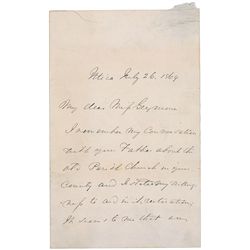 Utica July 26, 1869
My dear Miss Seymour
I remember my conversation
with your Father about the
old Parish Church in your
County and I stated my willing
ness to aid in its restoration
It seems to me that any